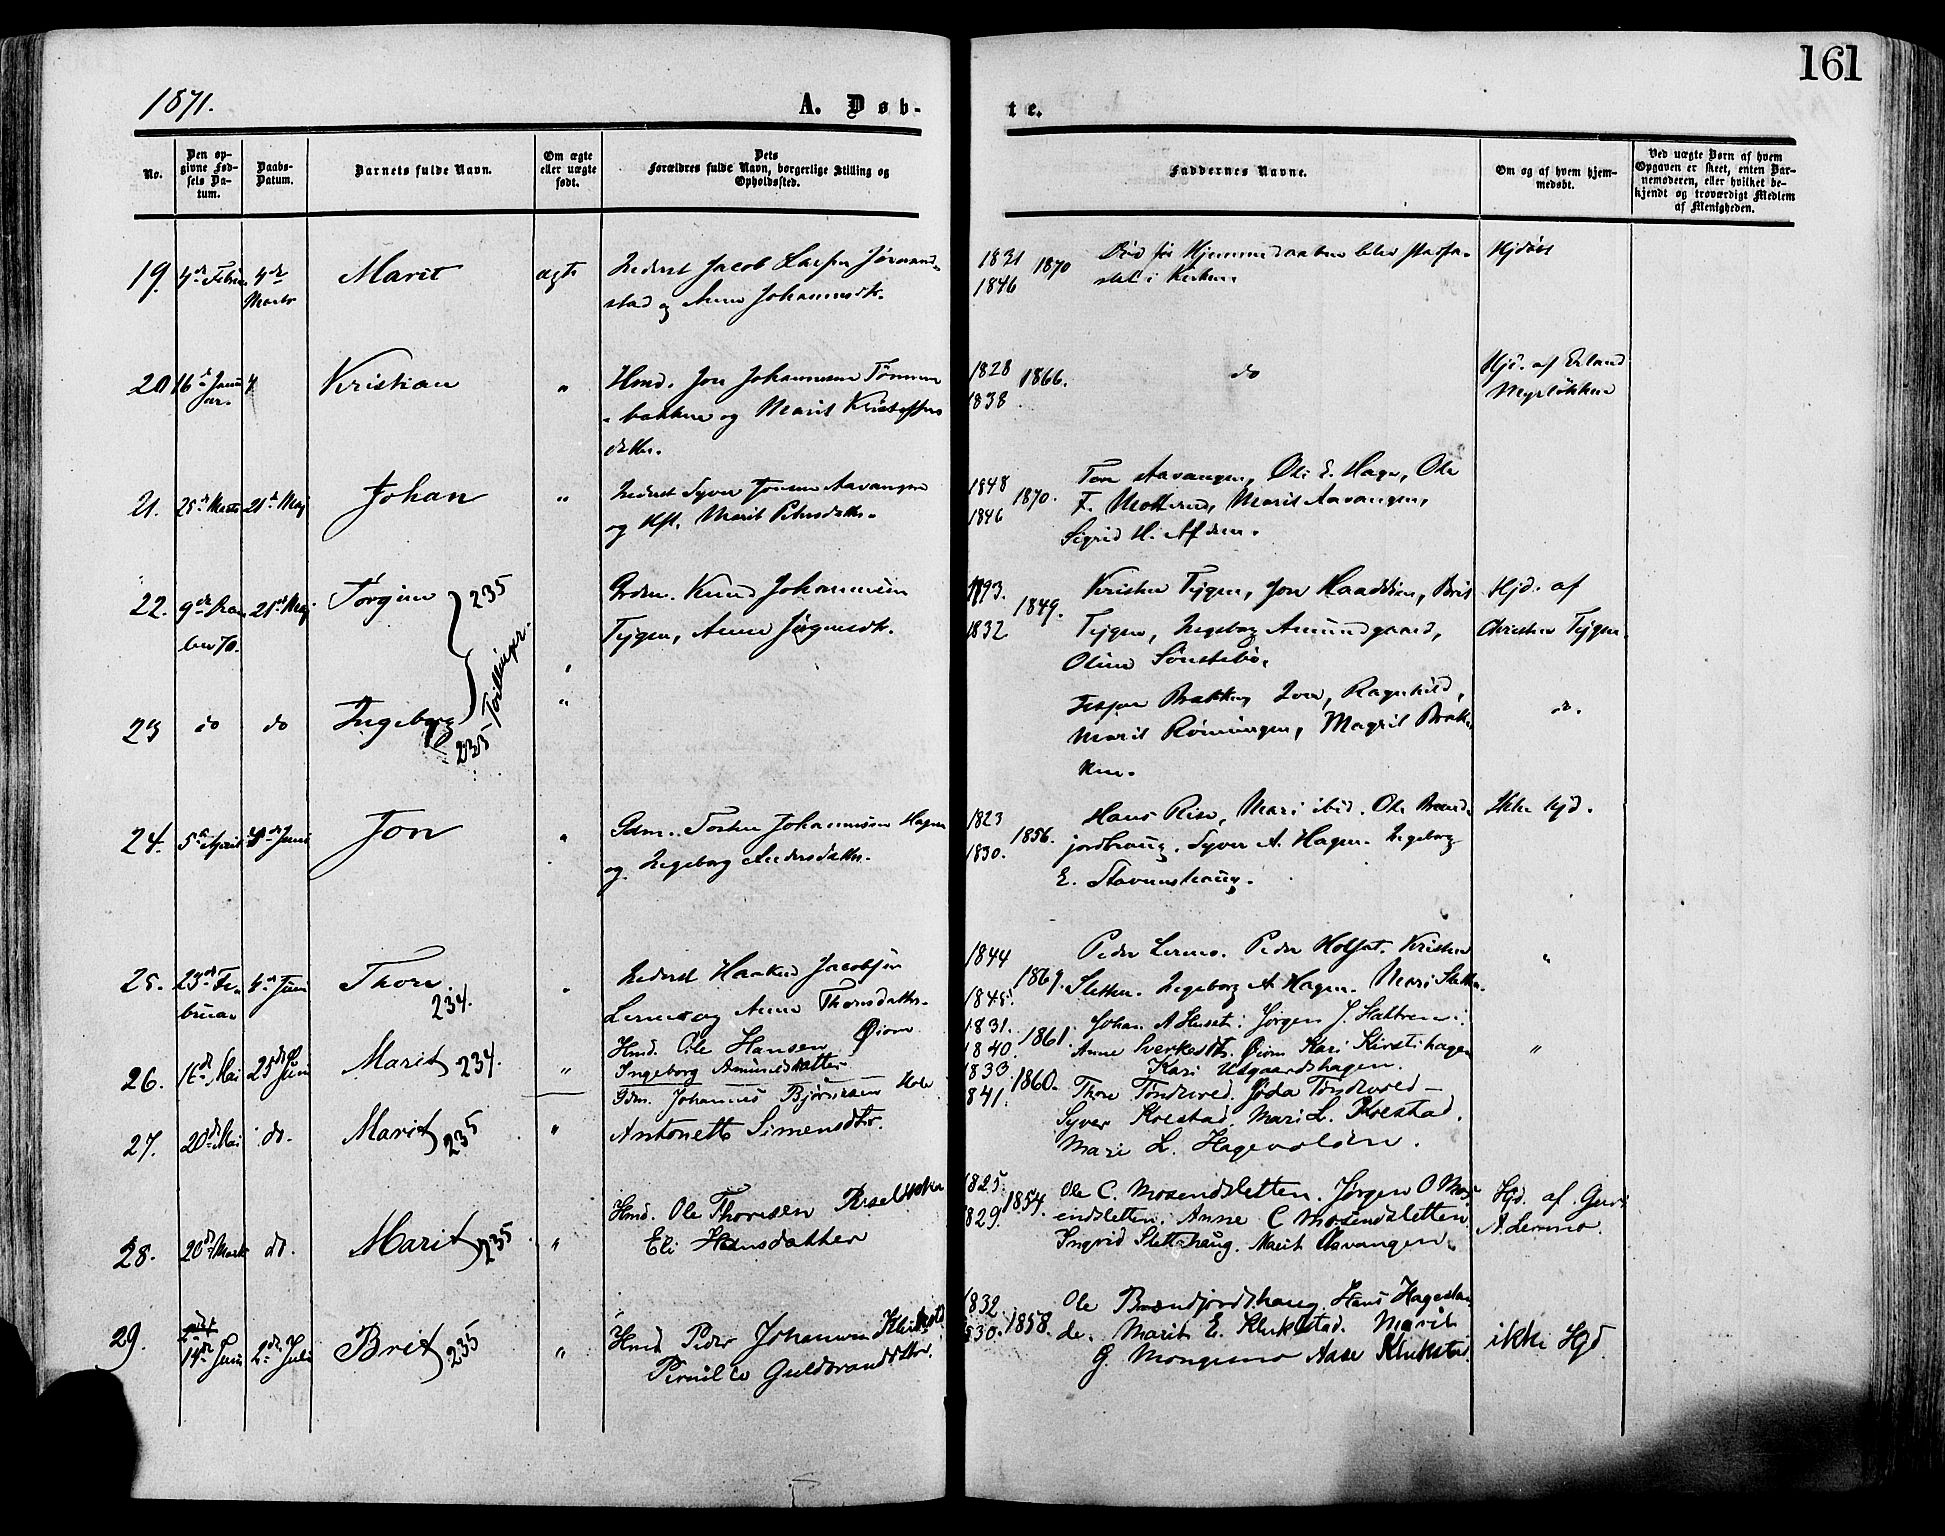 161
1871.
A. Døb-
te.
No.
Den op-
givne Fød-
sels Da-
tum.
Daabs-
Datum.
Barnets fulde Navn.
Om ægte
eller uægte
født.
Dets
Forældres fulde Navn, borgerlige Stilling og
Opholdssted.
Faddernes Navne.
Om og af hvem hjem-
medøbt.
Ved uægte Børn af hvem
Opgaven er skeet, enten Bar-
nemoderen, eller hvilket be-
kjendt og troværdigt Medlem
af Menigheden.
19. 4de 4de
Marts
Marit
ægte
Inderst Jacob
stad og Anne Johannesdtr.
1831
1846
1870
Død før Hjemmedaaben blev stadfæ-
stet i Kirken.
Hjdøbt
20 16de Janu
ar.
Kristian
"
Hmd. Jon Johannesen
bakken og Marit Kristoffers
datter.
1828
1838
1866.
do
Hjd. af Erland
Myrløkken
21. 25de Marts 21de Maj
Johan
"
Inderst Syver Aavangen
og Kst. Marit Pedersdatter.
1848
1846
1870.
Tore Aavangen, Ole E. Hage, Ole
F. Marit Aavangen,
Sigrid H.
22. 9de
ber 70.
21de Maj
Jørgine
235
Tvillinger.
"
Knud Johannesen
Tejgen, Anne Jørgensdtr.
1793.
1832
1849.
Kristen Tejgen, Jon Brit
Tejgen, Ingeborg Amundgaard,
Oline Sønstebø,
Hjd. af
Christen Tejgen.
23 do do
Ingeborg
235
"
Bakken, Iver, Ragnhild,
Marit Rønningen, Magnil Brak
ken.
do.
24. 5te April 4de Juni
Jon
"
Gdm. Johannesen Hagen
og Ingeborg Andersdatter.
1823
1830.
1856.
Hans Rise, Mari ibid. Ole Brænd
jordhaug. Syver A. Hagen. Ingeborg
E. Stavnshaug.
Ikke hjd.
25. 23de Fe-
bruar
4de Juni
Thore.
234.
"
Inderst Haaken Jacobsen
Lermo og Anne Thoresdatter.
1844
1845.
1869.
Peder Lermo. Peder Holset. Kristen
Sletten. Ingeborg A. Hagen. Mari Sletten.
"
26. 16de Mai 25de Juni
Marit 234.
"
Hmd. Ole Hansen Øiom
Ingeborg Amundsdatter
1831.
1840.
1861.
Johan A Huset: Jørgen J.
Anne Sverkesdtr. Øiom Kari Kirstihagen
Kari Udgaardshagen.
"
27. 20de Mai do.
Marit 235
"
Gdm. Johannes Bjørnsen Hole
Antonette Simensdtr.
1833
1841.
1860.
Thore Tøndevold. Jøda Tøndevold —
Syver Kolstad. Mari L. Kolstad.
Mari L. Hagevolden.
28. 20de Marts do.
Marit 235
"
Hmd. Ole Thoresen
Eli Hansdatter
1825.
1829.
1854.
Ole C. Mosendsletten. Jørgen O Mos
endsletten. Anne C Mosendsletten
Ingrid Slettehaug. Marit Aavangen.
Hjd. af Guri
A. Lermo.
29. 14de Juni 2de Juli
Brit 235
"
Hmd Peder Johannesen Klukstad
Pernille Guldbrandsdtr.
1832.
1830.
1858.
Ole Brændjordshaug. Hans Hagesta
de. Marit E. Klukstad. Marit
G. Mongsmo Aase Klukstad.
ikke Hjd.